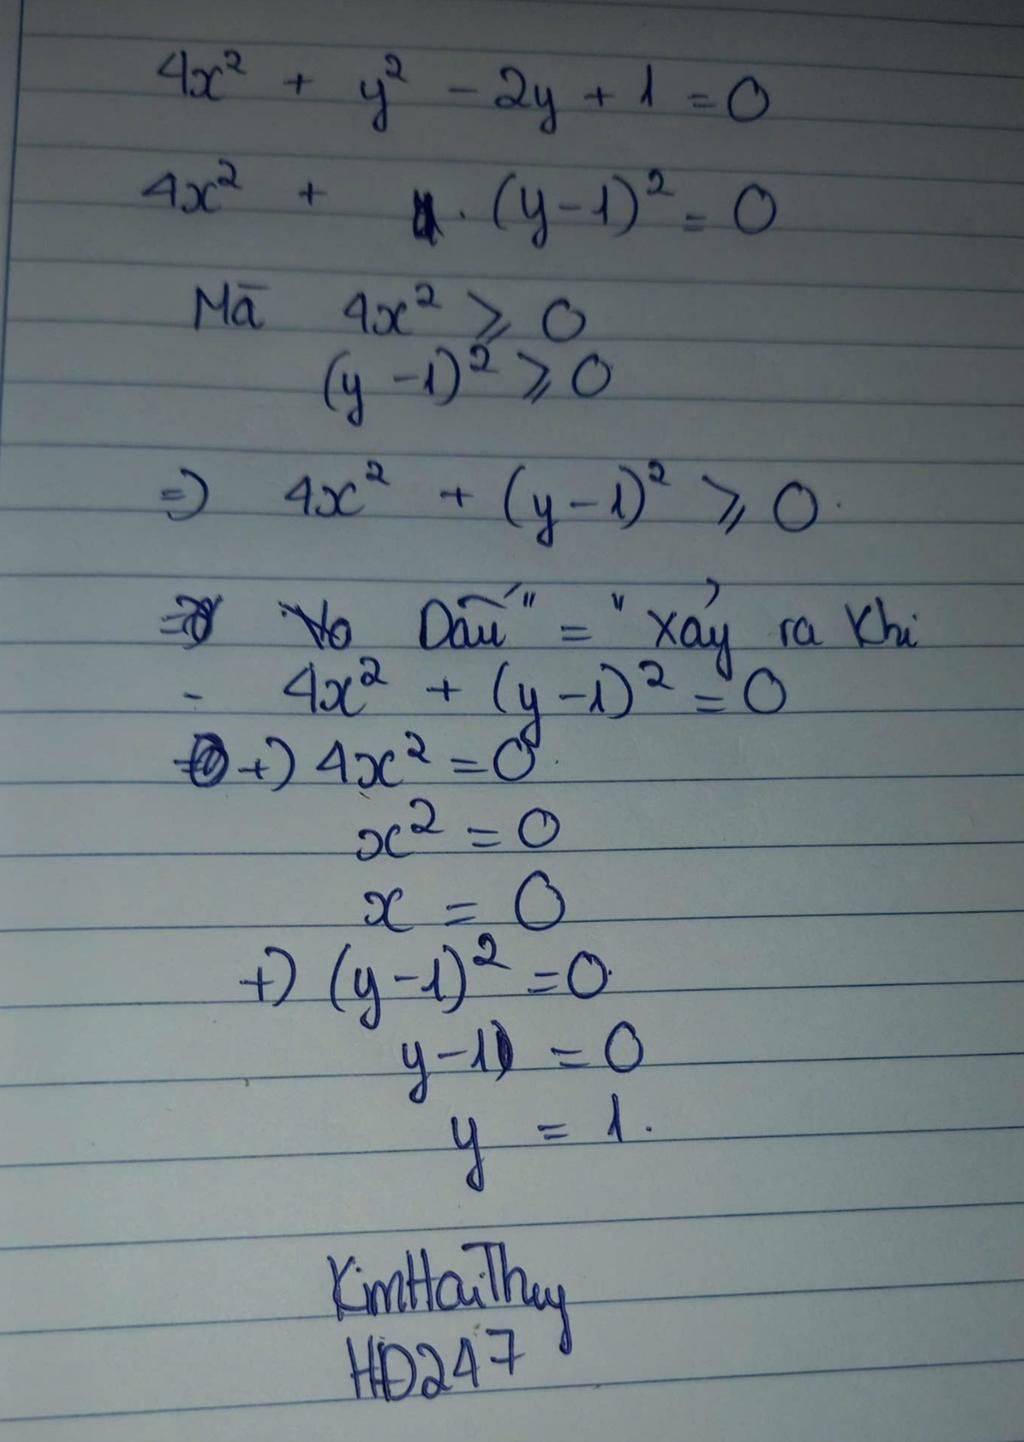 4x² + y² - 2y + 1 = 0
4x² + (y-1)² = 0
Mà 4x² ⩾ 0
(y-1)² ⩾ 0
=) 4x² + (y-1)² ⩾ 0.
Dấu "=" xảy ra khi
4x² + (y-1)² = 0
+) 4x² = 0
x² = 0
x = 0
+) (y-1)² = 0
y-1 = 0
y = 1.
KimHaiThuy
HD247